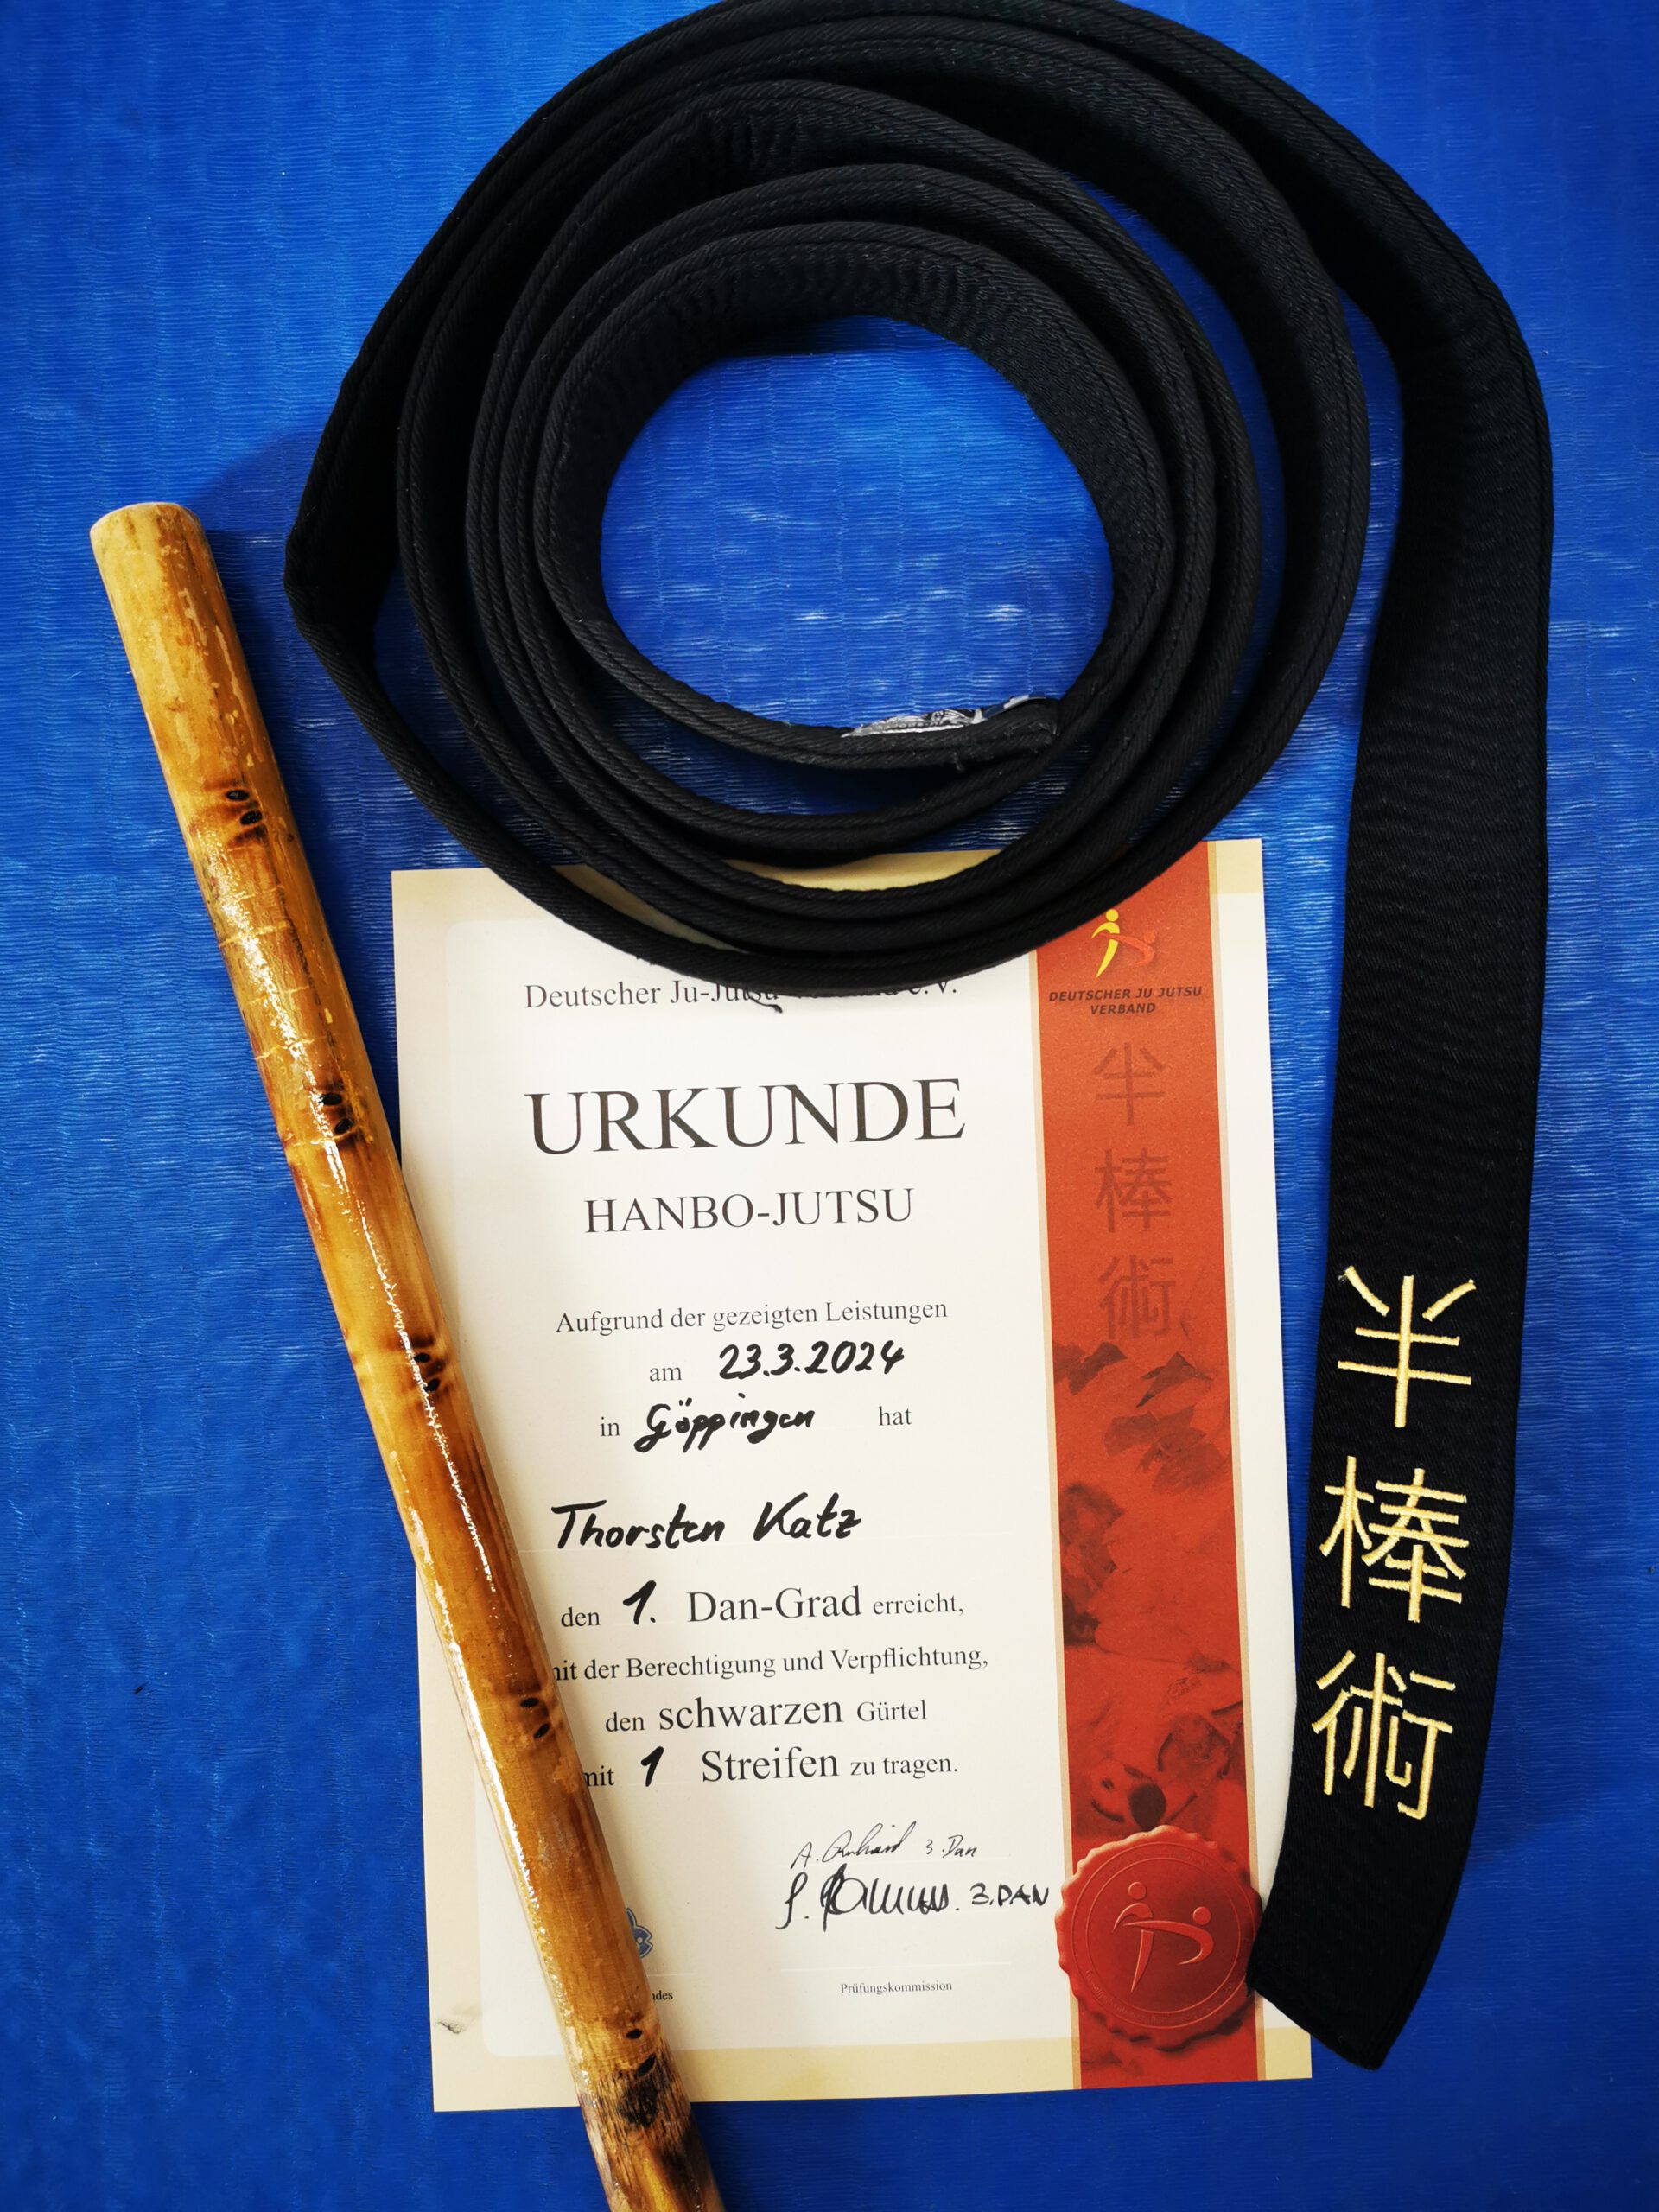 Deutscher Ju-Jutsu Verband e.V.
URKUNDE
HANBO-JUTSU
Aufgrund der gezeigten Leistungen
am 23.3.2024
in Göppingen hat
Thorsten Katz
den 1. Dan-Grad erreicht,
mit der Berechtigung und Verpflichtung,
den schwarzen Gürtel
mit 1 Streifen zu tragen.
3. Dan
3. DAN
Prüfungskommission
DEUTSCHER JU JUTSU
VERBAND
半
棒
術
半
棒
術